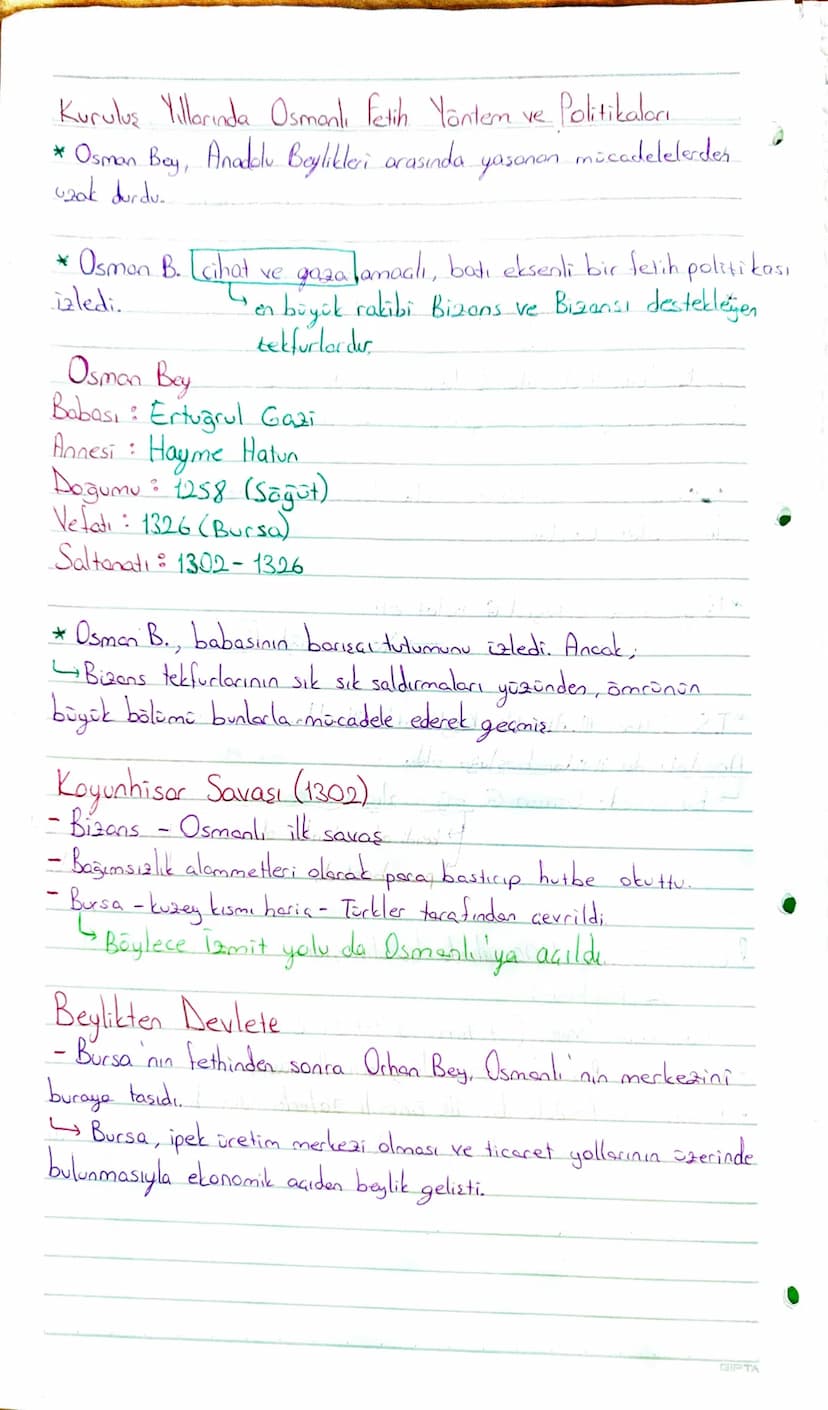 Kuruluş Yıllarında Osmanlı Fetih Yöntem ve Politikaları
* Osman Bey, Anadolu Beylikleri arasında yaşanan mücadelelerden
uzak durdu.
* Osman B. cihat ve gaza amaçlı, batı eksenli bir fetih politikası
izledi.
↳ en büyük rakibi Bizans ve Bizansı destekleyen
tekfurlardır.
Osman Bey
Babası : Ertuğrul Gazi
Annesi : Hayme Hatun
Doğumu : 1258 (Söğüt)
Vefatı : 1326 (Bursa)
Saltanatı : 1302 - 1326
* Osman B., babasının barışçı tutumunu izledi. Ancak;
↳ Bizans tekfurlarının sık sık saldırmaları yüzünden, ömrünün
büyük bölümü bunlarla mücadele ederek geçmiş.
Koyunhisar Savaşı (1302)
- Bizans - Osmanlı ilk savaş
- Bağımsızlık alammetleri olarak para bastırıp hutbe okuttu.
- Bursa - kuzey kısmı hariç - Türkler tarafından çevrildi
↳ Böylece İzmit yolu da Osmanlı'ya açıldı.
Beylikten Devlete
- Bursa'nın fethinden sonra Orhan Bey, Osmanlı'nın merkezini
buraya taşıdı.
↳ Bursa, ipek üretim merkezi olması ve ticaret yollarının üzerinde
bulunmasıyla ekonomik açıdan beylik gelişti.
GIPTA